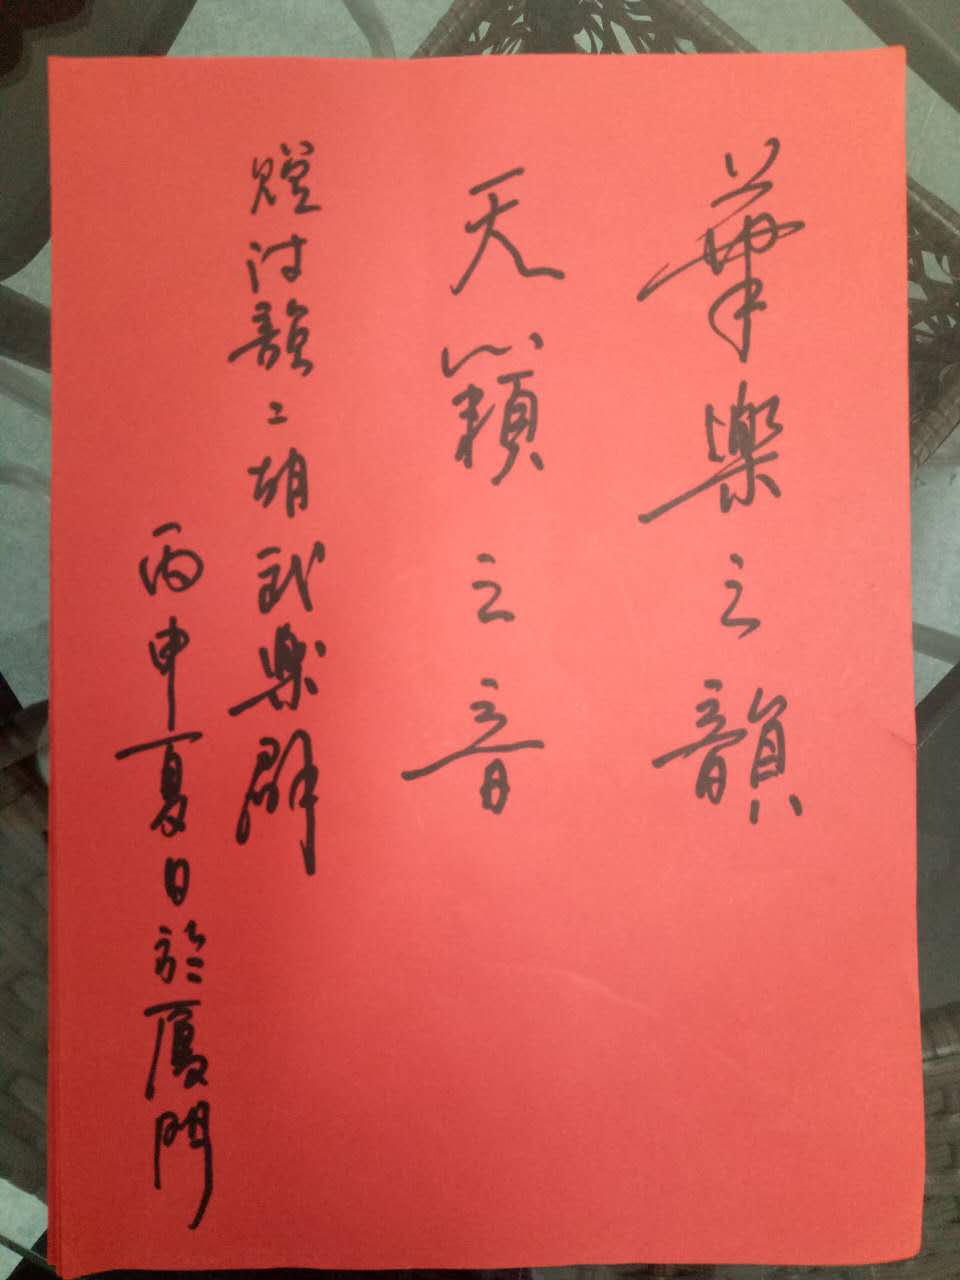 華樂之韻
天籟之音
贈詩韻二胡民樂群
丙申夏日於厦門